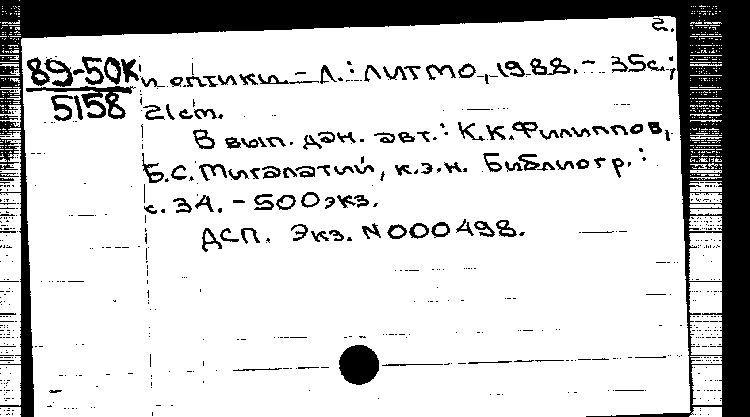 2.
89-50К
5158
и оптики. - Л.: ЛИТМО, 1988. - 35с.;
21см.
В вып. дан. авт.: К.К.Филиппов,
Б.С. Мигалатий, к.э.н. Библиогр.:
с. 34. - 500экз.
ДСП. Экз. N000498.